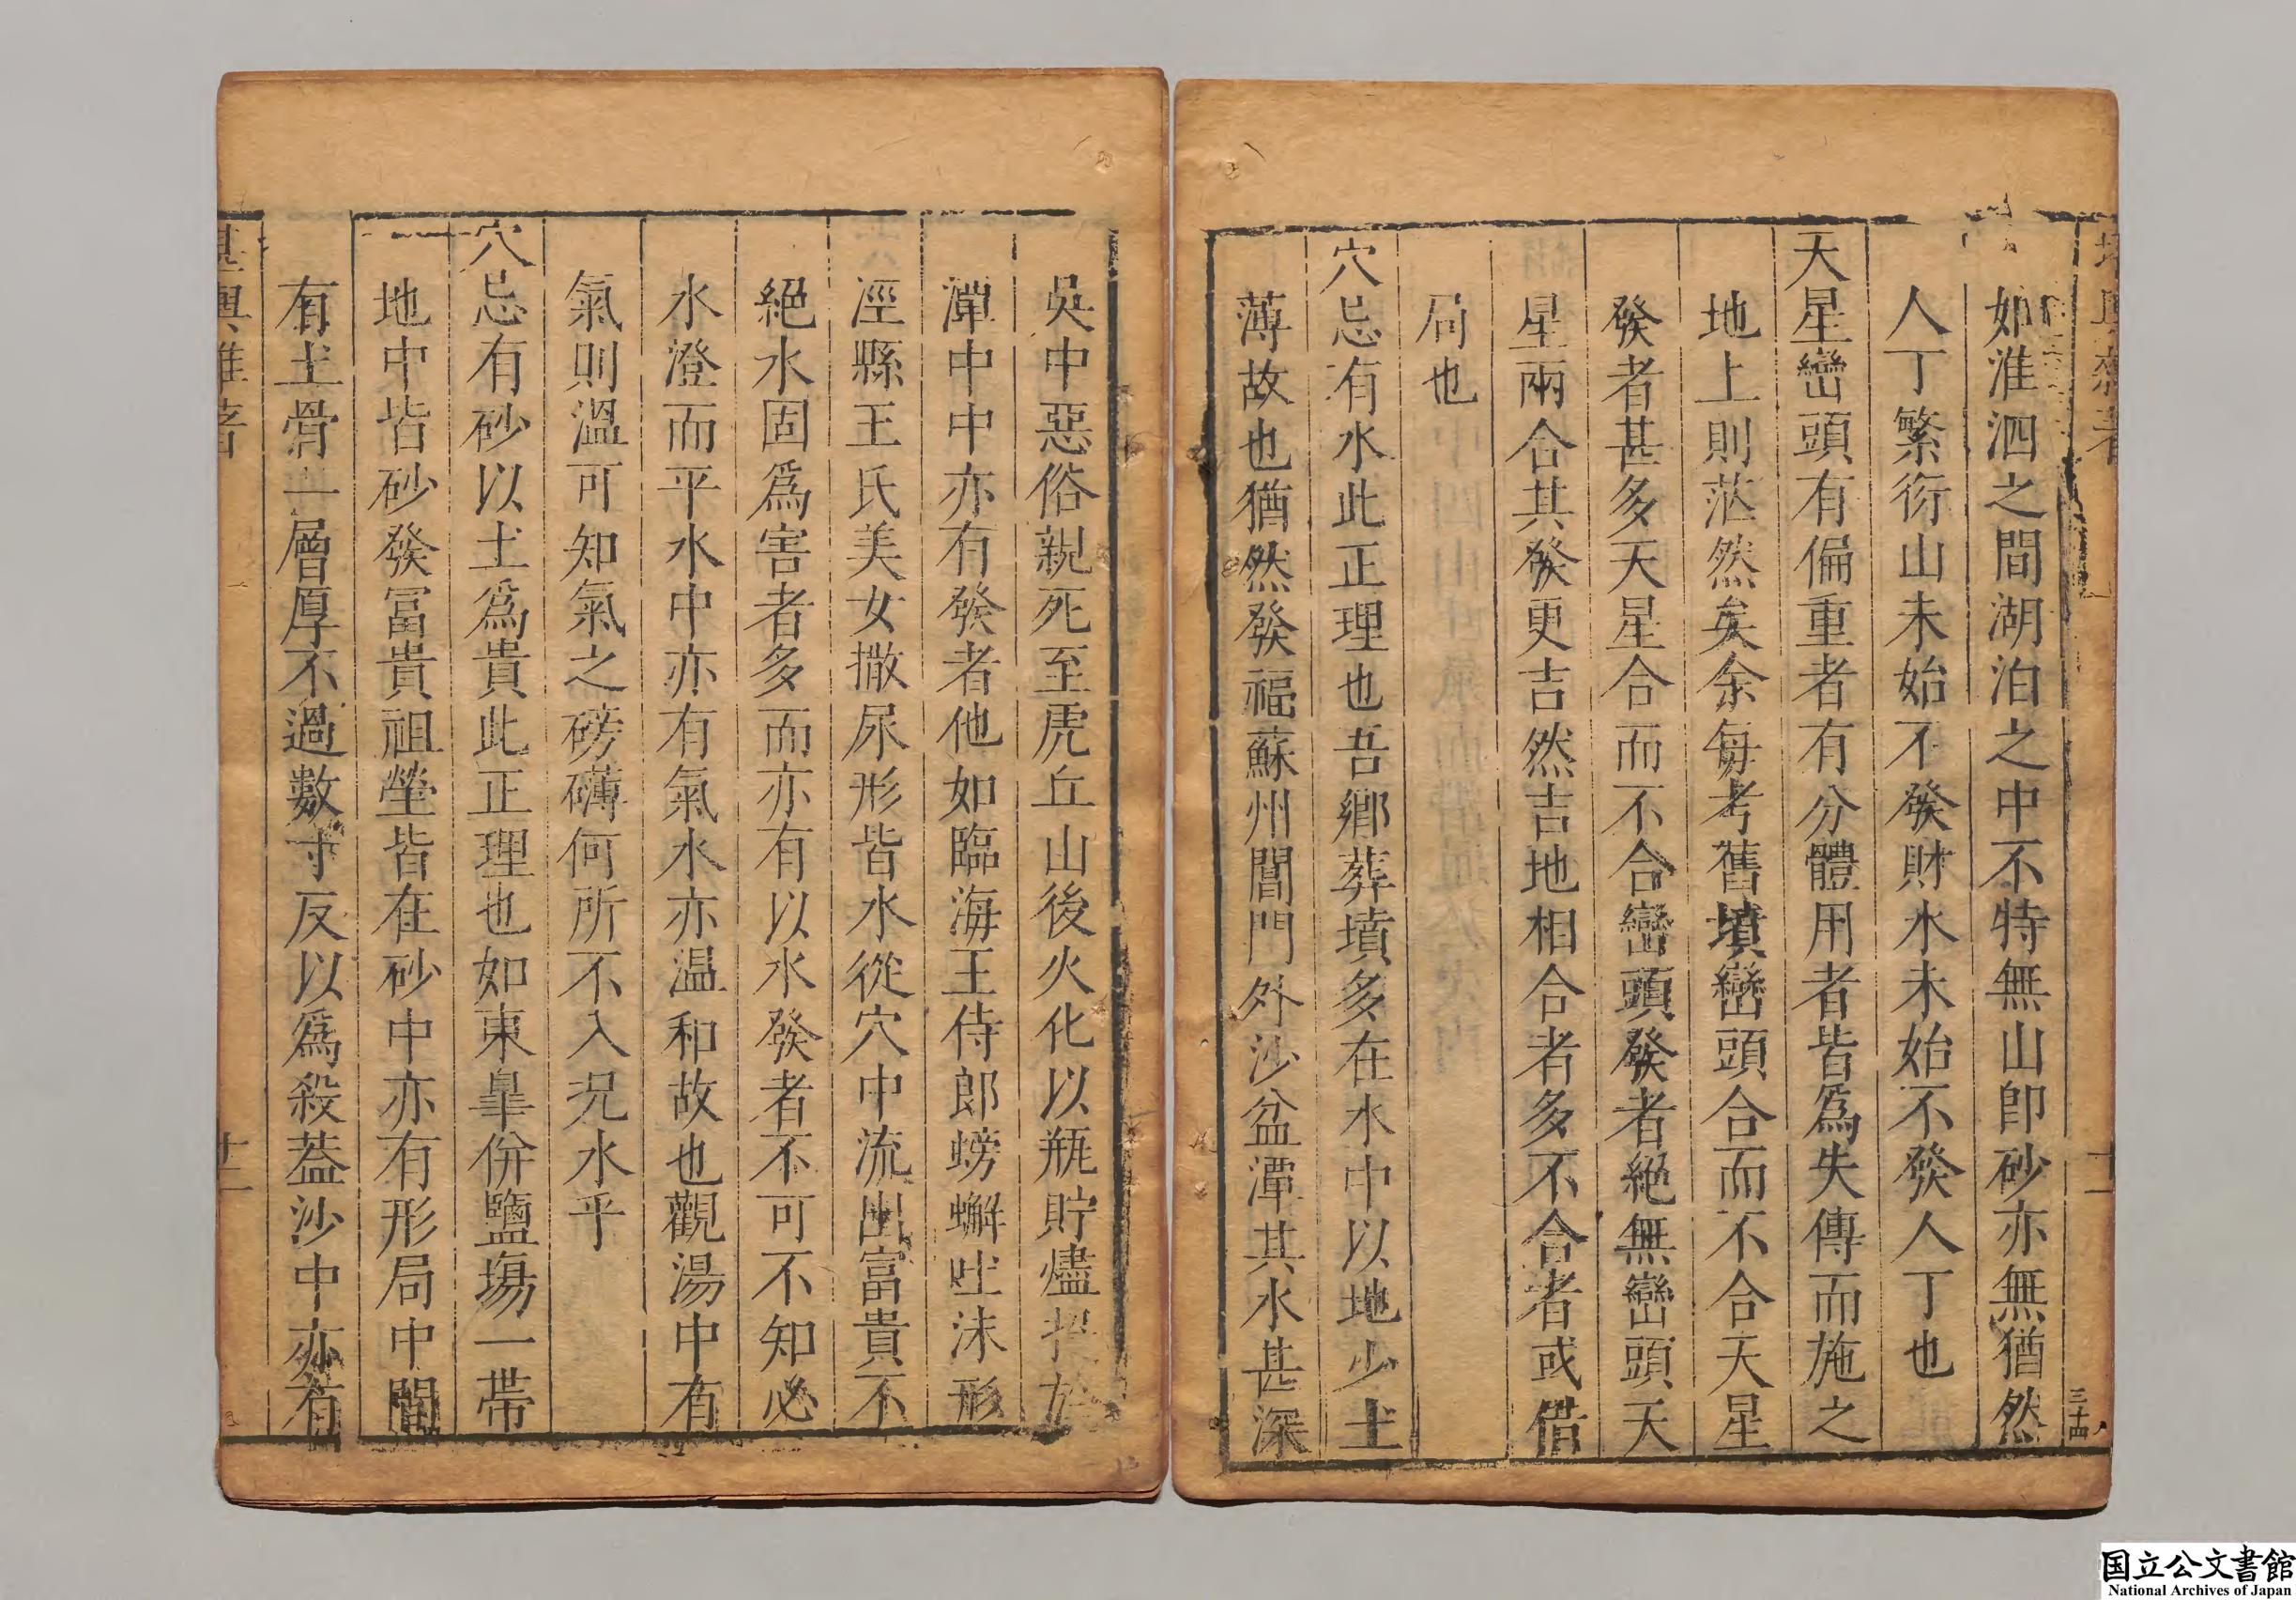 如淮泗之間湖泊之中不特無山卽砂亦無猶然
人丁繁衍山未始不發財水未始不發人丁也
天星巒頭有偏重者有分體用者皆爲失傳而施之
地上則茫然矣余每考舊墳巒頭合而不合天星
發者甚多天星合而不合巒頭發者絕無巒頭天
星兩合其發更吉然吉地相合者多不合者或借
局也
穴忌有水此正理也吾鄉葬墳多在水中以地少土
薄故也猶然發福蘇州閶門外沙盆潭其水甚深
三十四
十一
吳中惡俗親死至虎丘山後火化以瓶貯燼投於
潭中中亦有發者他如臨海王侍郎螃蠏吐沫形
涇縣王氏美女撒尿形皆水從穴中流出富貴不
絕水固爲害者多而亦有以水發者不可不知必
水澄而平水中亦有氣水亦温和故也觀湯中有
氣則溫可知氣之磅礴何所不入况水乎
穴忌有砂以土爲貴此正理也如東臯併鹽塲一帶
地中皆砂發冨貴祖塋皆在砂中亦有形局中間
有土骨一層厚不過數寸反以爲殺葢沙中亦有
堪輿雜著
十二
国立公文書館
National Archives of Japan